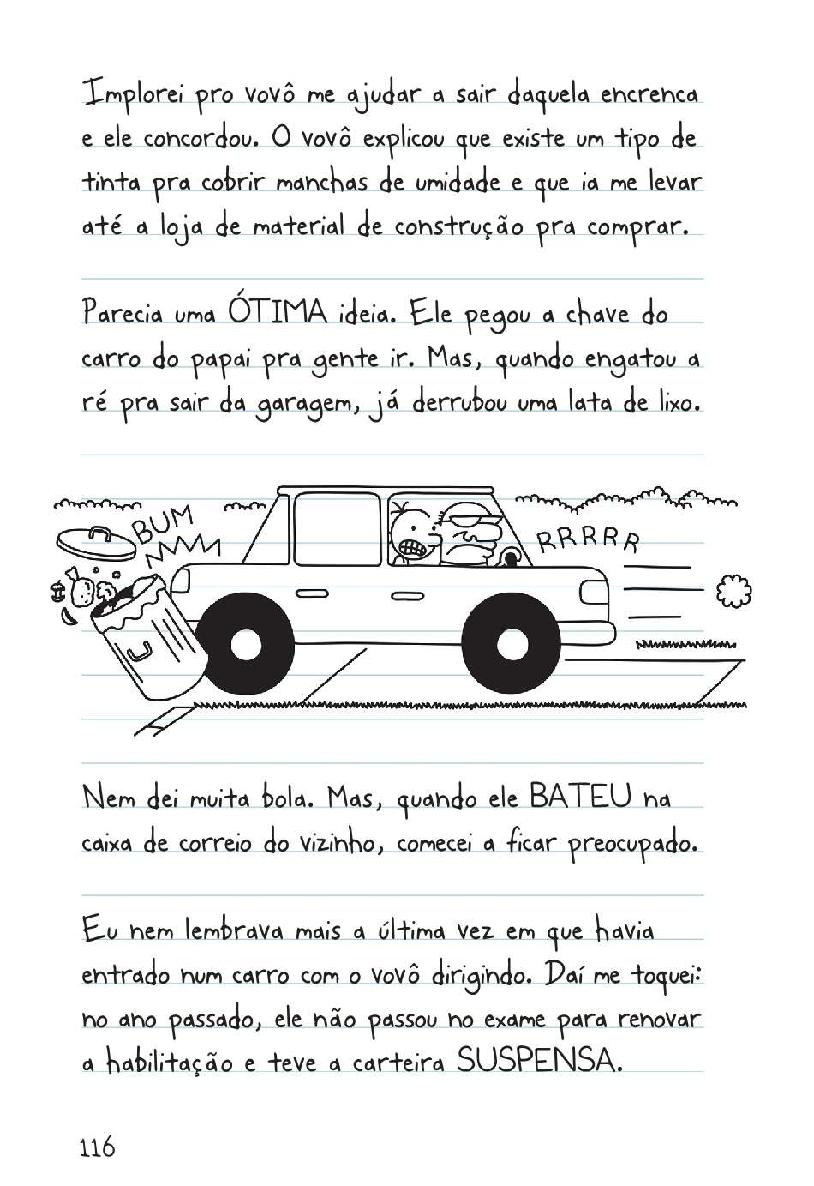 Implorei pro vovô me ajudar a sair daquela encrenca
e ele concordou. O vovô explicou que existe um tipo de
tinta pra cobrir manchas de umidade e que ia me levar
até a loja de material de construção pra comprar.
Parecia uma ÓTIMA ideia. Ele pegou a chave do
carro do papai pra gente ir. Mas, quando engatou a
ré pra sair da garagem, já derrubou uma lata de lixo.
BUM
RRRRR
Nem dei muita bola. Mas, quando ele BATEU na
caixa de correio do vizinho, comecei a ficar preocupado.
Eu nem lembrava mais a última vez em que havia
entrado num carro com o vovô dirigindo. Daí me toquei:
no ano passado, ele não passou no exame para renovar
a habilitação e teve a carteira SUSPENSA.
116